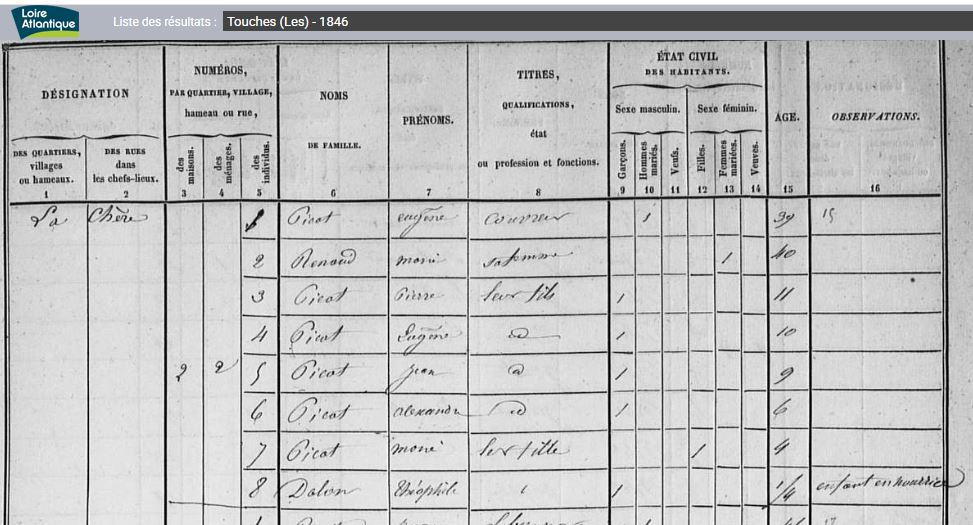 Loire
Atlantique
Liste des résultats : Touches (Les) - 1846
DÉSIGNATION
DES QUARTIERS,
villages
ou hameaux.
1
DES RUES
dans
les chefs-lieux.
2
NUMÉROS,
PAR QUARTIER, VILLAGE,
hameau ou rue,
des
maisons.
3
des
ménages.
4
des
individus.
5
NOMS
DE FAMILLE.
6
PRÉNOMS.
7
TITRES,
QUALIFICATIONS,
état
ou profession et fonctions.
8
ÉTAT CIVIL
DES HABITANTS.
Sexe masculin.
Garçons.
9
Hommes
mariés.
10
Veufs.
11
Sexe féminin.
Filles.
12
Femmes
mariées.
13
Veuves.
14
AGE.
15
OBSERVATIONS.
16
La Chère 1 Picot eugène couvreur 1 39 15
2 Renaud marie sa femme 1 40
3 Picot Pierre leur fils 1 11
4 Picot Eugène id 1 10
2 2 5 Picot jean id 1 9
6 Picot alexandre id 1 6
7 Picot marie leur fille 1 4
8 Dalon théophile 1 1/4 enfant en nourrice
17